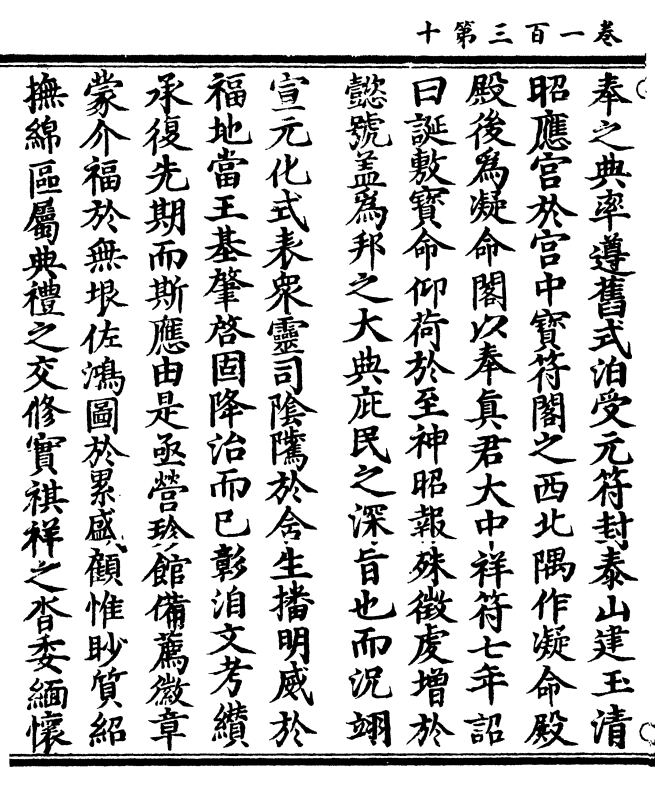 卷一百三第十
奉之典率遵舊式洎受元符封泰山建玉清
昭應宮於宮中寶符閣之西北隅作凝命殿
殿後為凝命閣以奉真君大中祥符七年詔
曰誕敷寶命仰荷於至神昭報殊徵虔增於
懿號盖為邦之大典庇民之深旨也而況翊
宣元化式表衆靈司陰隲於含生播明威於
福地當王基肇啓固降治而已彰洎文考纘
承復先期而斯應由是亟營珍館備薦徽章
蒙介福於無垠佐鴻圖於累盛顧惟眇質紹
撫綿區屬典禮之交修實祺祥之沓委緬懷